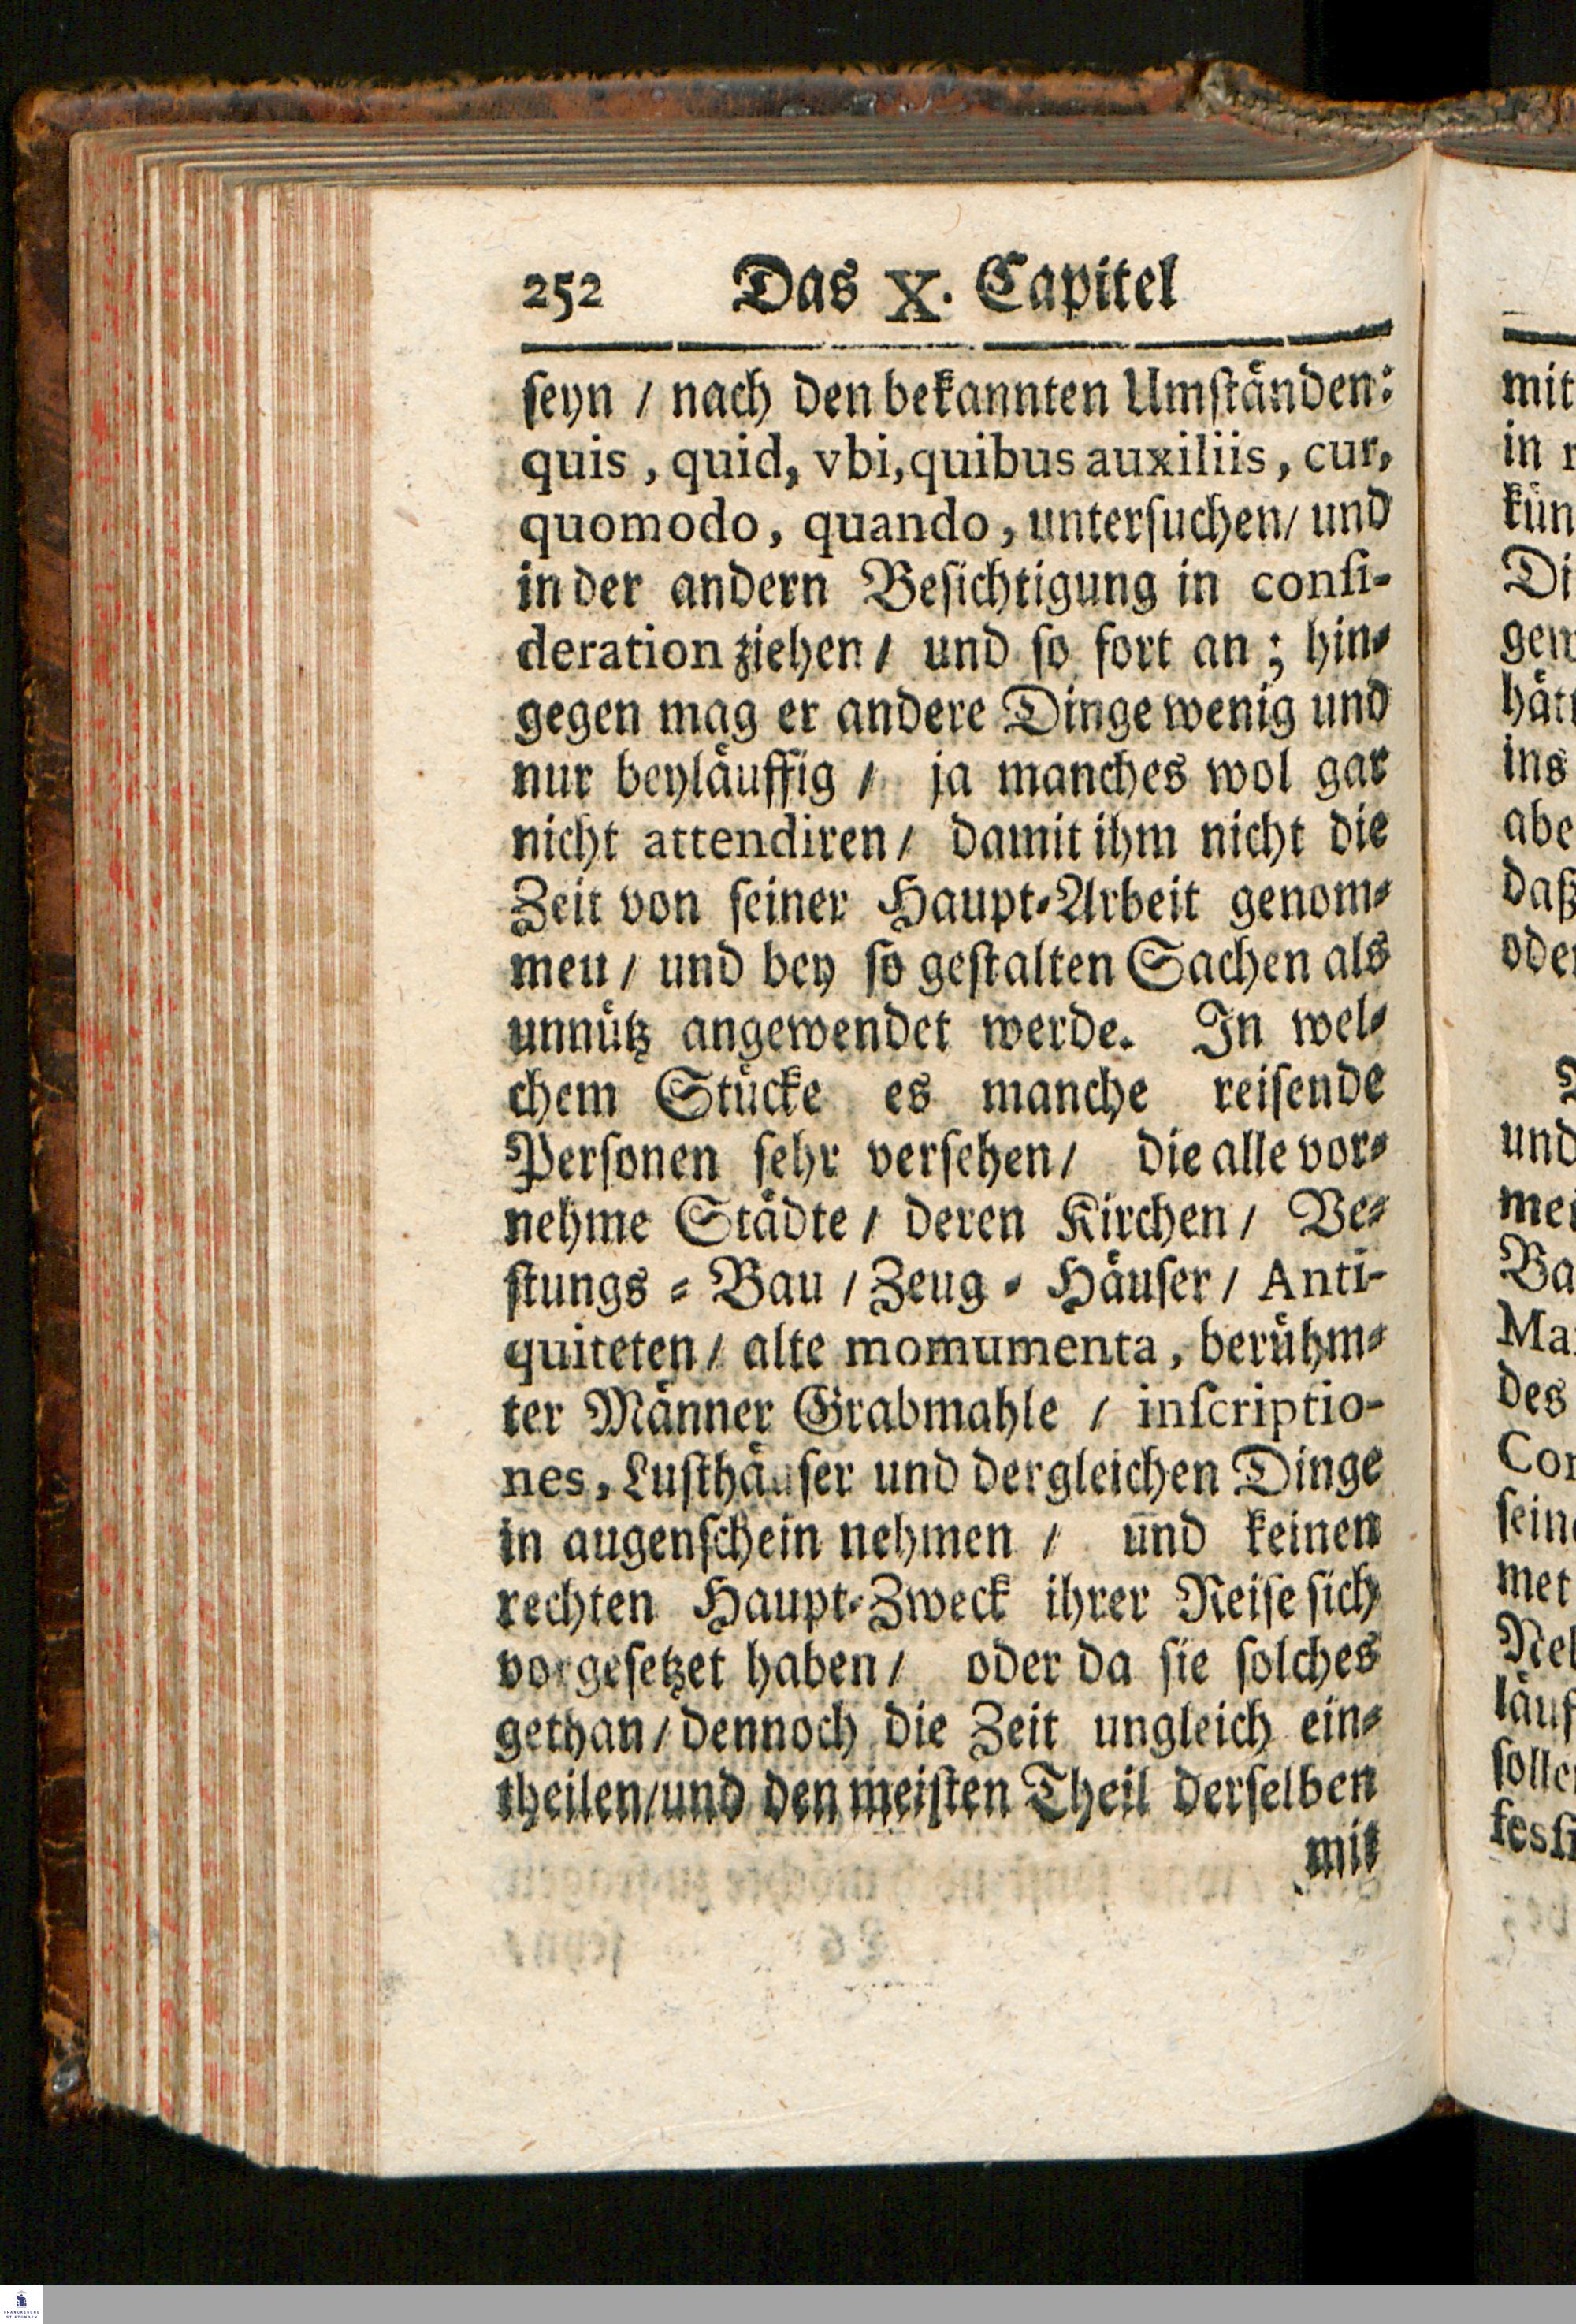 252 Das X. Capitel
seyn / nach den bekannten Umständen:
quis, quid, vbi, quibus auxiliis, cur,
quomodo, quando, untersuchen/ und
in der andern Besichtigung in consi-
deration ziehen / und so fort an; hin-
gegen mag er andere Dinge wenig und
nur beyläuffig / ja manches wol gar
nicht attendiren / damit ihm nicht die
Zeit von seiner Haupt-Arbeit genom-
men / und bey so gestalten Sachen als
unnütz angewendet werde. In wel-
chem Stücke es manche reisende
Personen sehr versehen / die alle vor-
nehme Städte / deren Kirchen / Ve-
stungs-Bau / Zeug-Häuser / Anti-
quiteten / alte momumenta, berühm-
ter Männer Grabmahle / inscriptio-
nes, Lusthäuser und dergleichen Dinge
in augenschein nehmen / und keinen
rechten Haupt-Zweck ihrer Reise sich
vorgesetzet haben / oder da sie solches
gethan / dennoch die Zeit ungleich ein-
theilen / und den meisten Theil derselben
mit
mit
in
kün
Di
gem
hätt
ins
abe
daß
oder
und
mei
Va
Ma
des
Con
seine
met
Nel
läuf
solle